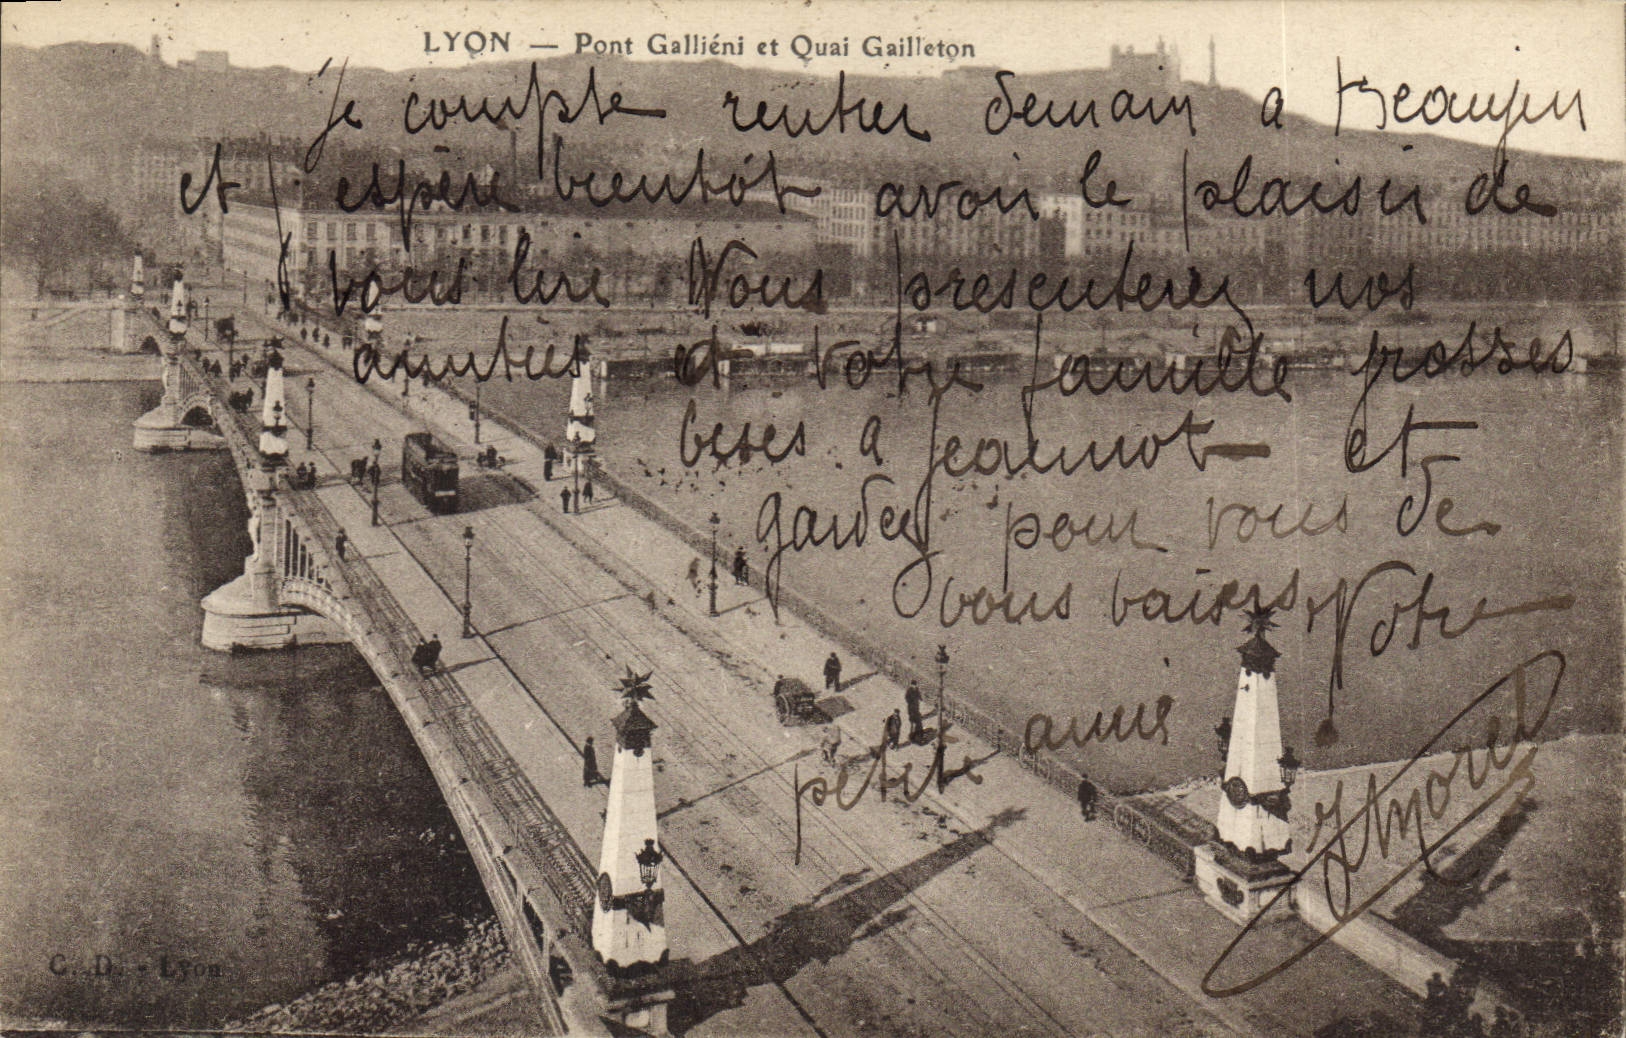 LYON — Pont Galliéni et Quai Gailleton
Je compte rentrer demain a Beaujeu
et j'espère bientôt avoir le plaisir de
vous lire Vous présenterez nos
amitiés et votre famille grosses
bises a Jeannot et
gardez pour vous de
bons baisers Votre
petite amie
C. D. - Lyon